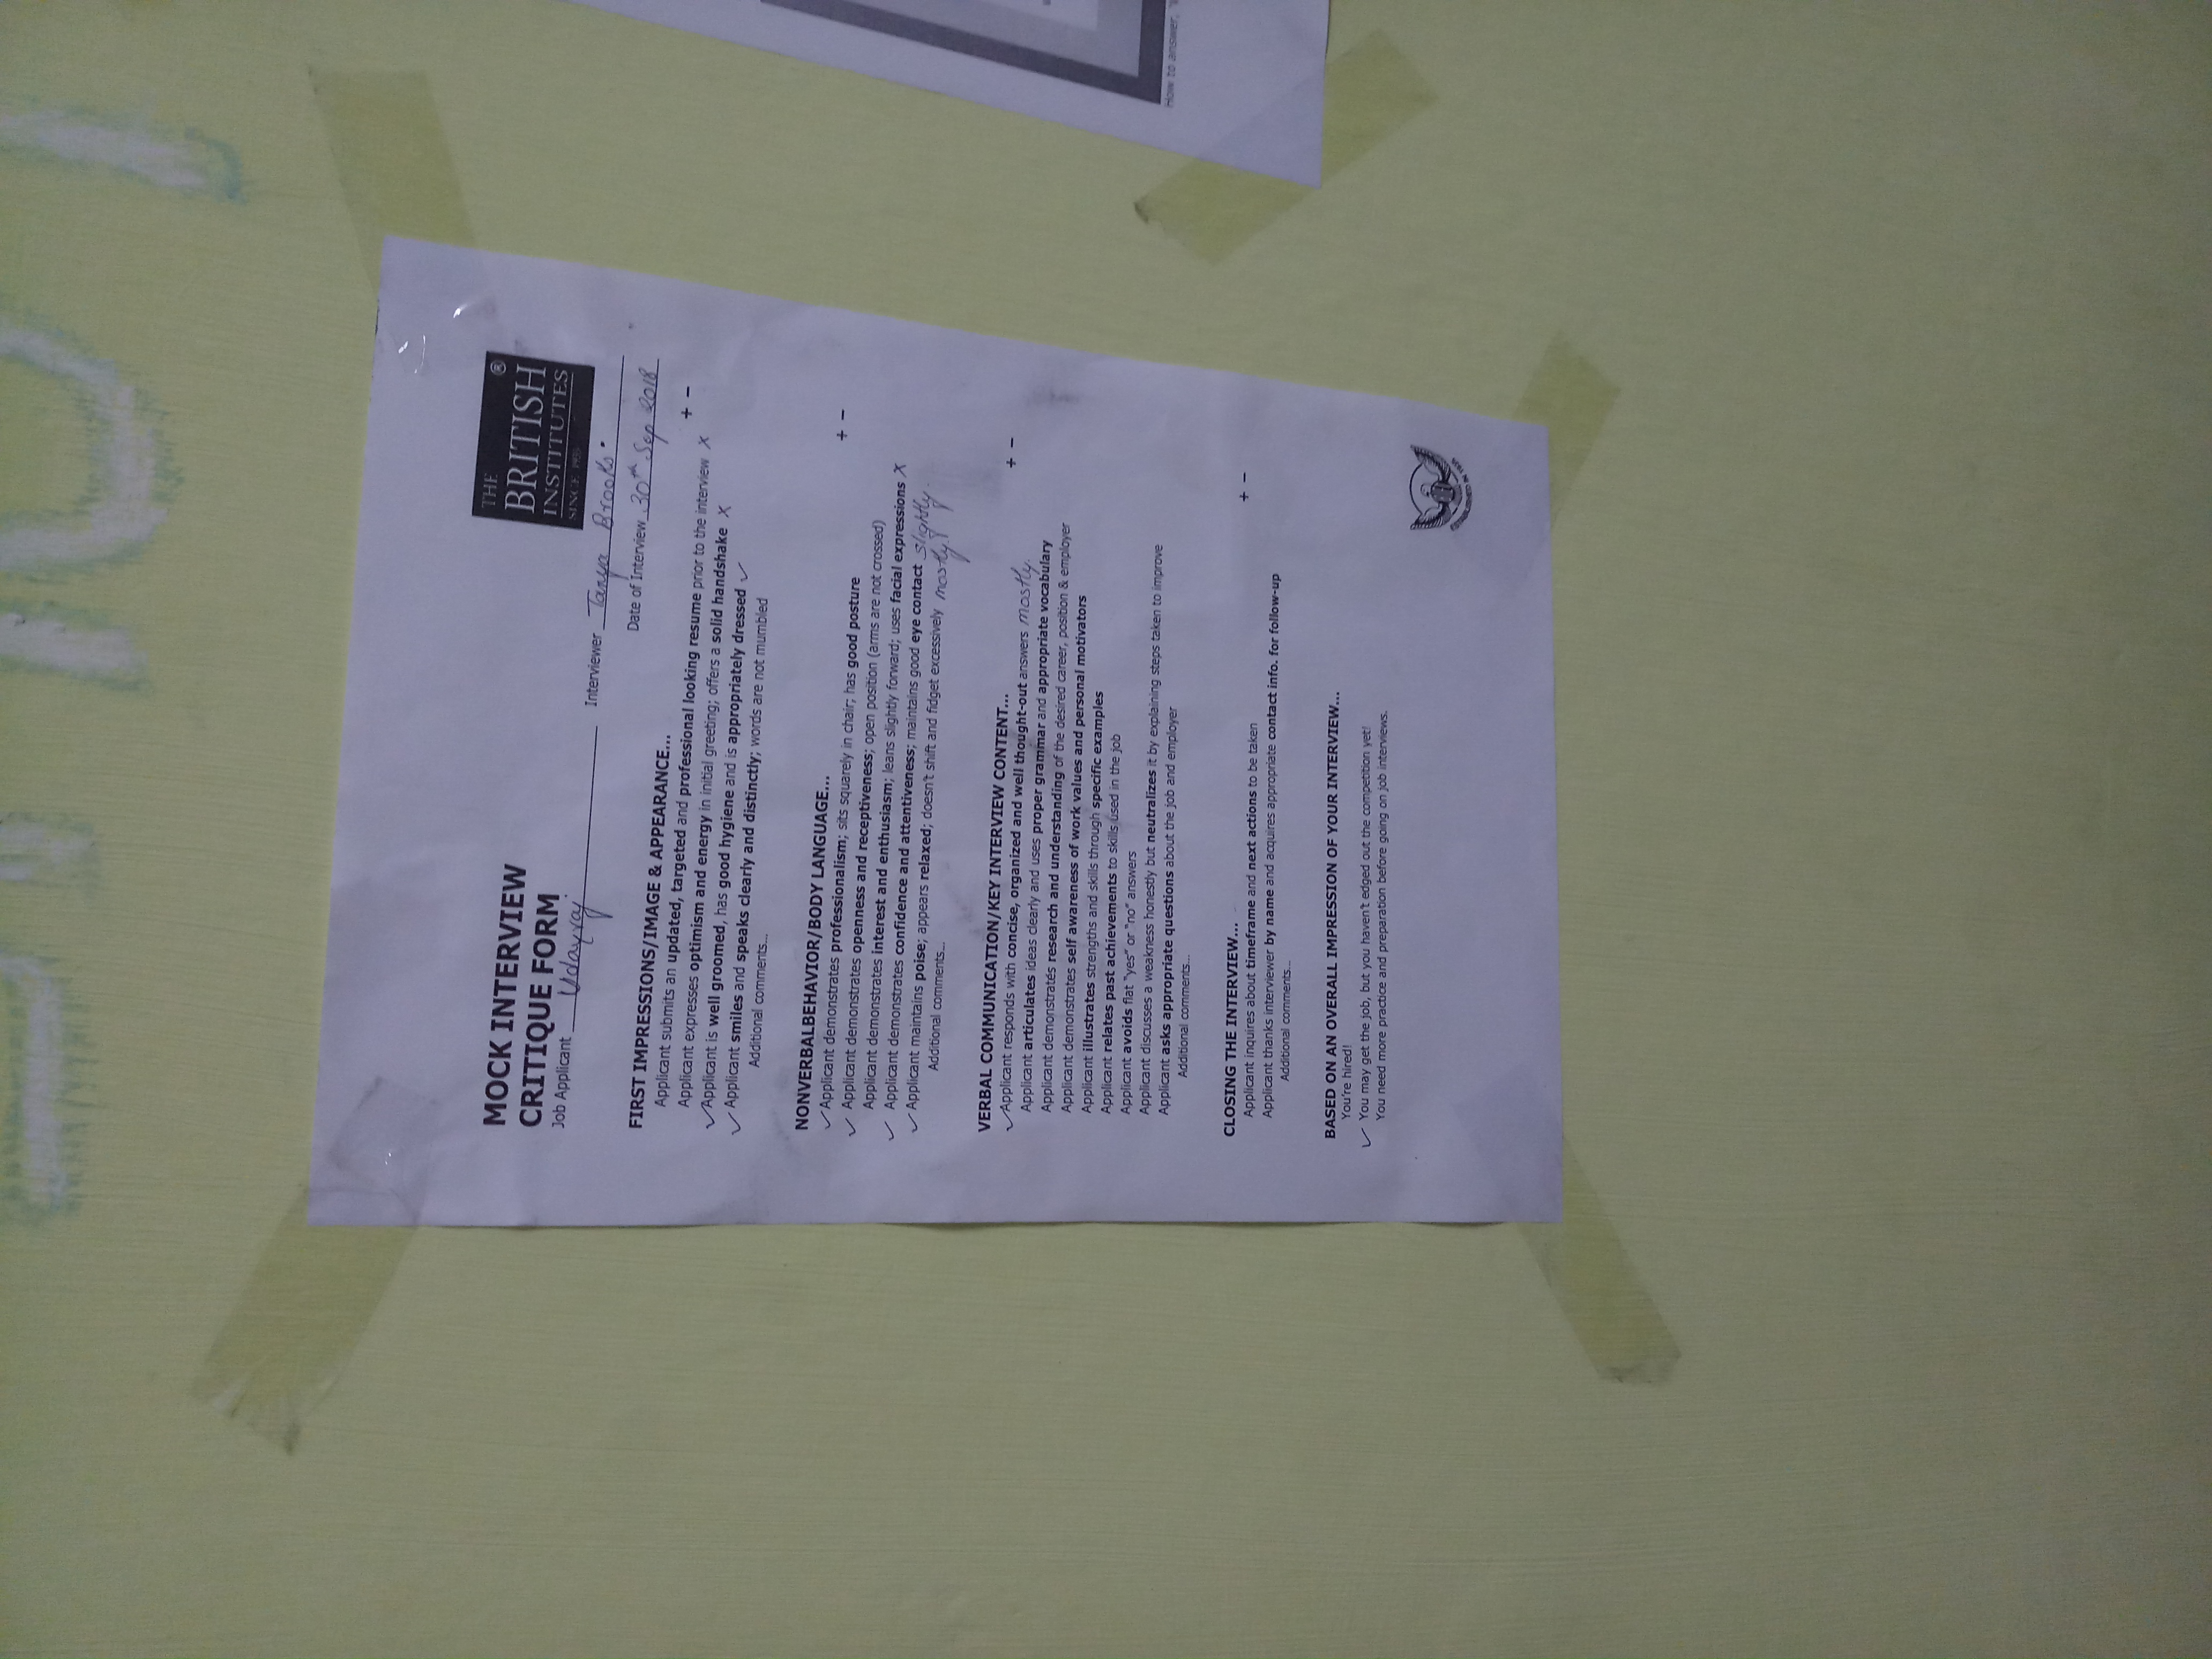 MOCK INTERVIEW
CRITIQUE FORM
THE
BRITISH ®
INSTITUTES
SINCE 1935
Job Applicant Udayraj
Interviewer Tanya Brooks
Date of Interview 30th Sep 2018
FIRST IMPRESSIONS/IMAGE & APPEARANCE...
+ −
Applicant submits an updated, targeted and professional looking resume prior to the interview X
Applicant expresses optimism and energy in initial greeting; offers a solid handshake X
✓ Applicant is well groomed, has good hygiene and is appropriately dressed ✓
✓ Applicant smiles and speaks clearly and distinctly; words are not mumbled
Additional comments...
NONVERBALBEHAVIOR/BODY LANGUAGE...
+ −
✓ Applicant demonstrates professionalism; sits squarely in chair; has good posture
✓ Applicant demonstrates openness and receptiveness; open position (arms are not crossed)
Applicant demonstrates interest and enthusiasm; leans slightly forward; uses facial expressions X
✓ Applicant demonstrates confidence and attentiveness; maintains good eye contact slightly.
✓ Applicant maintains poise; appears relaxed; doesn't shift and fidget excessively mostly.
Additional comments...
VERBAL COMMUNICATION/KEY INTERVIEW CONTENT...
+ −
✓ Applicant responds with concise, organized and well thought-out answers mostly.
Applicant articulates ideas clearly and uses proper grammar and appropriate vocabulary
Applicant demonstrates research and understanding of the desired career, position & employer
Applicant demonstrates self awareness of work values and personal motivators
Applicant illustrates strengths and skills through specific examples
Applicant relates past achievements to skills used in the job
Applicant avoids flat "yes" or "no" answers
Applicant discusses a weakness honestly but neutralizes it by explaining steps taken to improve
Applicant asks appropriate questions about the job and employer
Additional comments...
CLOSING THE INTERVIEW...
+ −
Applicant inquires about timeframe and next actions to be taken
Applicant thanks interviewer by name and acquires appropriate contact info. for follow-up
Additional comments...
BASED ON AN OVERALL IMPRESSION OF YOUR INTERVIEW...
You're hired!
✓ You may get the job, but you haven't edged out the competition yet!
You need more practice and preparation before going on job interviews.
ESTABLISHED IN 1935
How to answer,